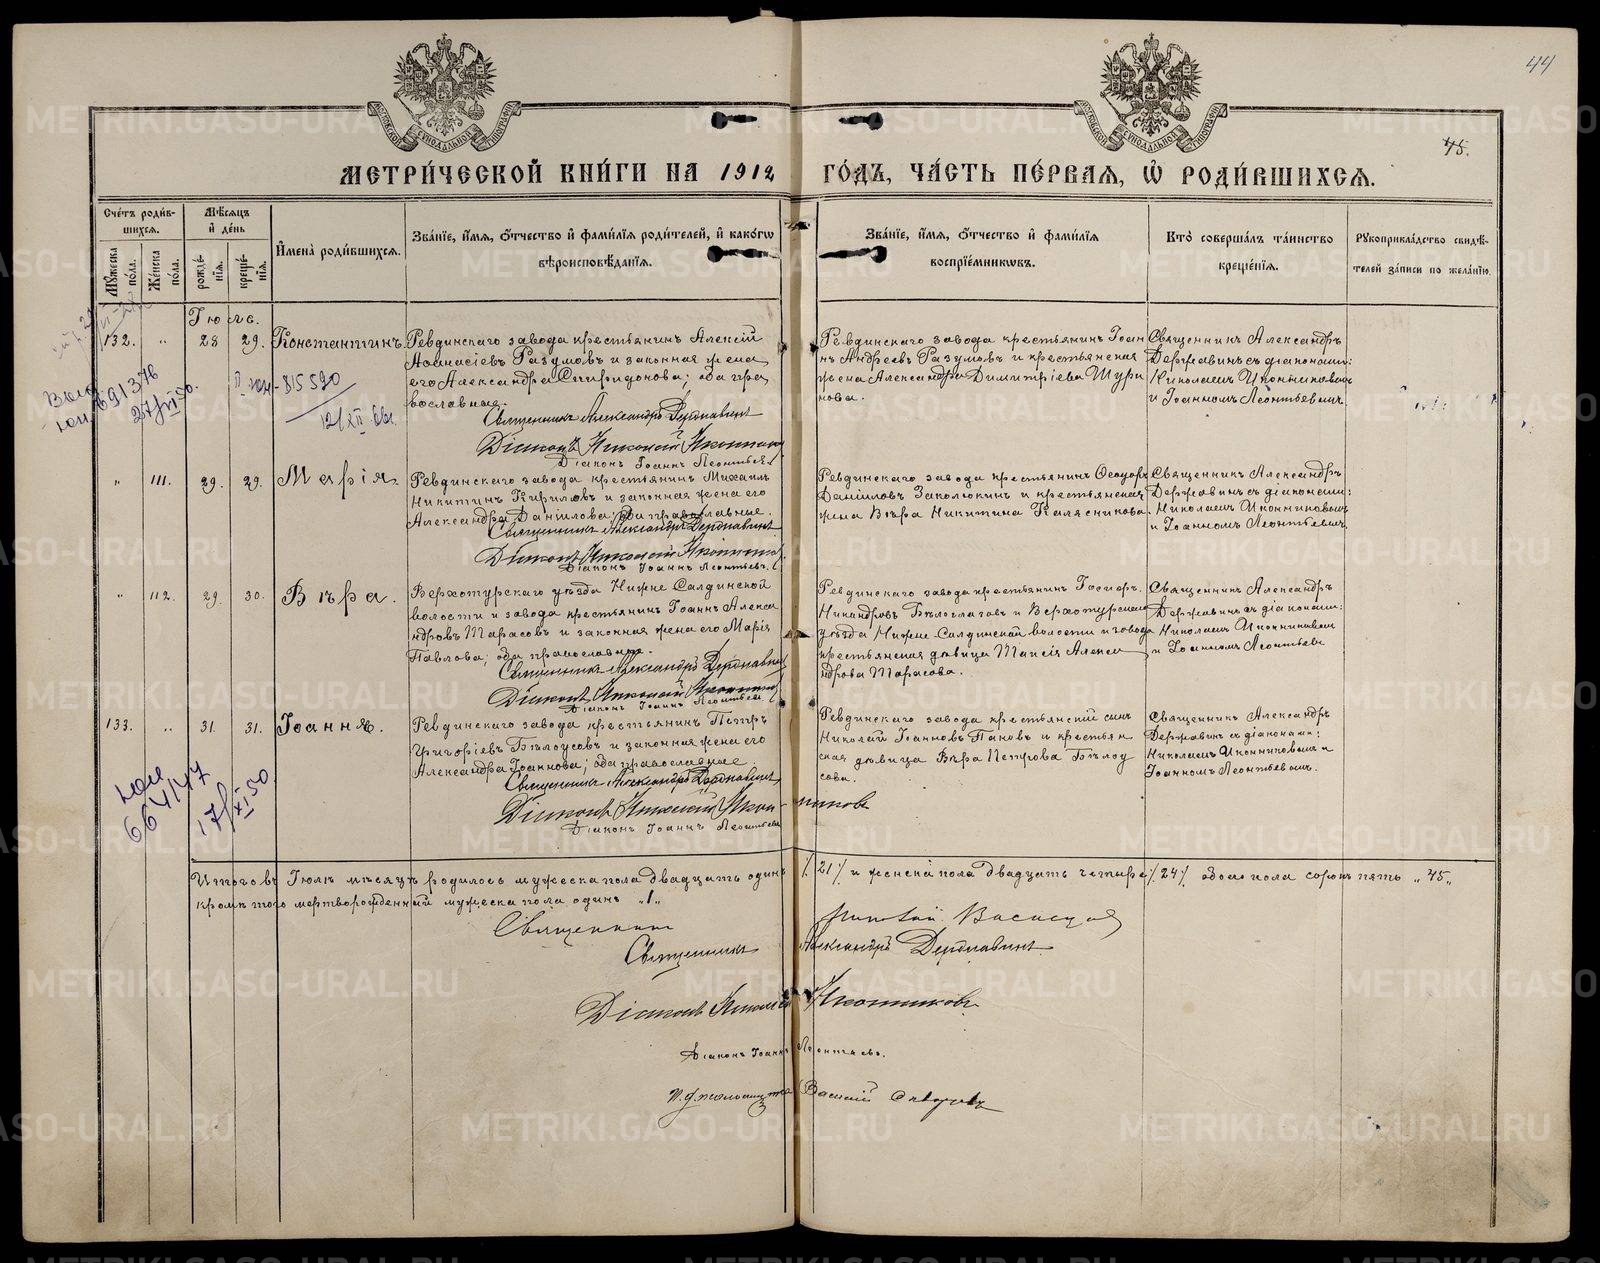 44
45.
МЕТРИ́ЧЕСКОЙ КНИ́ГИ НА 1912 ГО́ДЪ, ЧА́СТЬ ПЕ́РВАЯ, Ѡ҆ РОДИ́ВШИХСЯ.
Сче́тъ роди́в-
шихся.
Мѣ́сяцъ
и де́нь
Мꙋ́жеска по́ла.
Же́нска по́ла.
рожде́-
нїя.
креще́-
нїя.
И҆мена̀ роди́вшихся.
Зва́нїе, и҆́мя, ѻ҆́тчество и҆ фами́лїя роди́телей, и҆ како́гѡ
вѣроисповѣ́данїя.
Зва́нїе, и҆́мя, ѻ҆́тчество и҆ фами́лїя
воспрїе́мникѡвъ.
Кто̀ соверша́лъ та́инство
креще́нїя.
Рꙋкоприкла́дство свидѣ́-
телей за́писи по жела́нїю.
Іюль.
132. „ 28 29. Константинъ.
Ревдинскаго завода крестьянинъ Алексій
Аѳанасіевъ Разумовъ и законная жена
его Александра Спиридонова; оба пра
вославные.
Священникъ Александръ Державинъ
Діаконъ Николай Иконников
Діаконъ Іоаннъ Леонтьевъ
Ревдинскаго завода крестьянинъ Іоан
нъ Андреевъ Разумовъ и крестьянская
жена Александра Димитріева Шури
нова.
Священникъ Александръ
Державинъ съ діаконами:
Николаемъ Иконниковымъ
и Іоанномъ Леонтьевымъ.
691376
27/VI 50.
815590
12/XII 66г.
„ 111. 29. 29. Марія.
Ревдинскаго завода крестьянинъ Михаилъ
Никитинъ Кириловъ и законная жена его
Александра Даніилова; оба православные.
Священникъ Александръ Державинъ
Діаконъ Николай Иконников
Діаконъ Іоаннъ Леонтьевъ.
Ревдинскаго завода крестьянинъ Ѳеодоръ
Даніиловъ Заколюкинъ и крестьянская
жена Вѣра Никитина Калясникова.
Священникъ Александръ
Державинъ съ діаконами:
Николаемъ Иконниковымъ
и Іоанномъ Леонтьевымъ.
„ 112. 29. 30. Вѣра.
Верхотурскаго уѣзда Нижне Салдинской
волости и завода крестьянинъ Іоаннъ Алекса
ндровъ Тарасовъ и законная жена его Марія
Павлова; оба православные.
Священникъ Александръ Державинъ
Діаконъ Николай Иконников
Діаконъ Іоаннъ Леонтьевъ
Ревдинскаго завода крестьянинъ
Никандровъ и Верхотурскаго
уѣзда Нижне-Салдинской волости и завода
крестьянская дѣвица Таисія Алекса
ндрова Тарасова.
Священникъ Александръ
Державинъ съ діаконами:
Николаемъ Иконниковымъ
и Іоанномъ Леонтьевы
133. „ 31. 31. Іоаннъ.
Ревдинскаго завода крестьянинъ Петръ
Григоріевъ Бѣлоусовъ и законная жена его
Александра Іоаннова; оба православные.
Священникъ Александръ Державинъ
Діаконъ Николай Иконниковъ
Діаконъ Іоаннъ Леонтьевъ
Ревдинскаго завода крестьянскій сынъ
Николай Іоанновъ Пановъ и крестьян
ская дѣвица Вѣра Петрова Бѣлоу
сова.
Священникъ Александръ
Державинъ съ діаконами:
Николаемъ Иконниковымъ и
Іоанномъ Леонтьевымъ.
664/47
17/XI 50
Итого въ Іюлѣ мѣсяцѣ родилось мужеска пола двадцать одинъ /21/ и женска пола двадцать четыре /24/ обоего пола сорокъ пять „45„
кромѣ того мертворожденный мужеска пола одинъ „1„
Священникъ
Священникъ Александръ Державинъ.
Діаконъ Николай Иконниковъ
Діаконъ Іоаннъ Леонтьевъ.
И. д. псаломщика Василій
METRIKI.GASO-URAL.RU